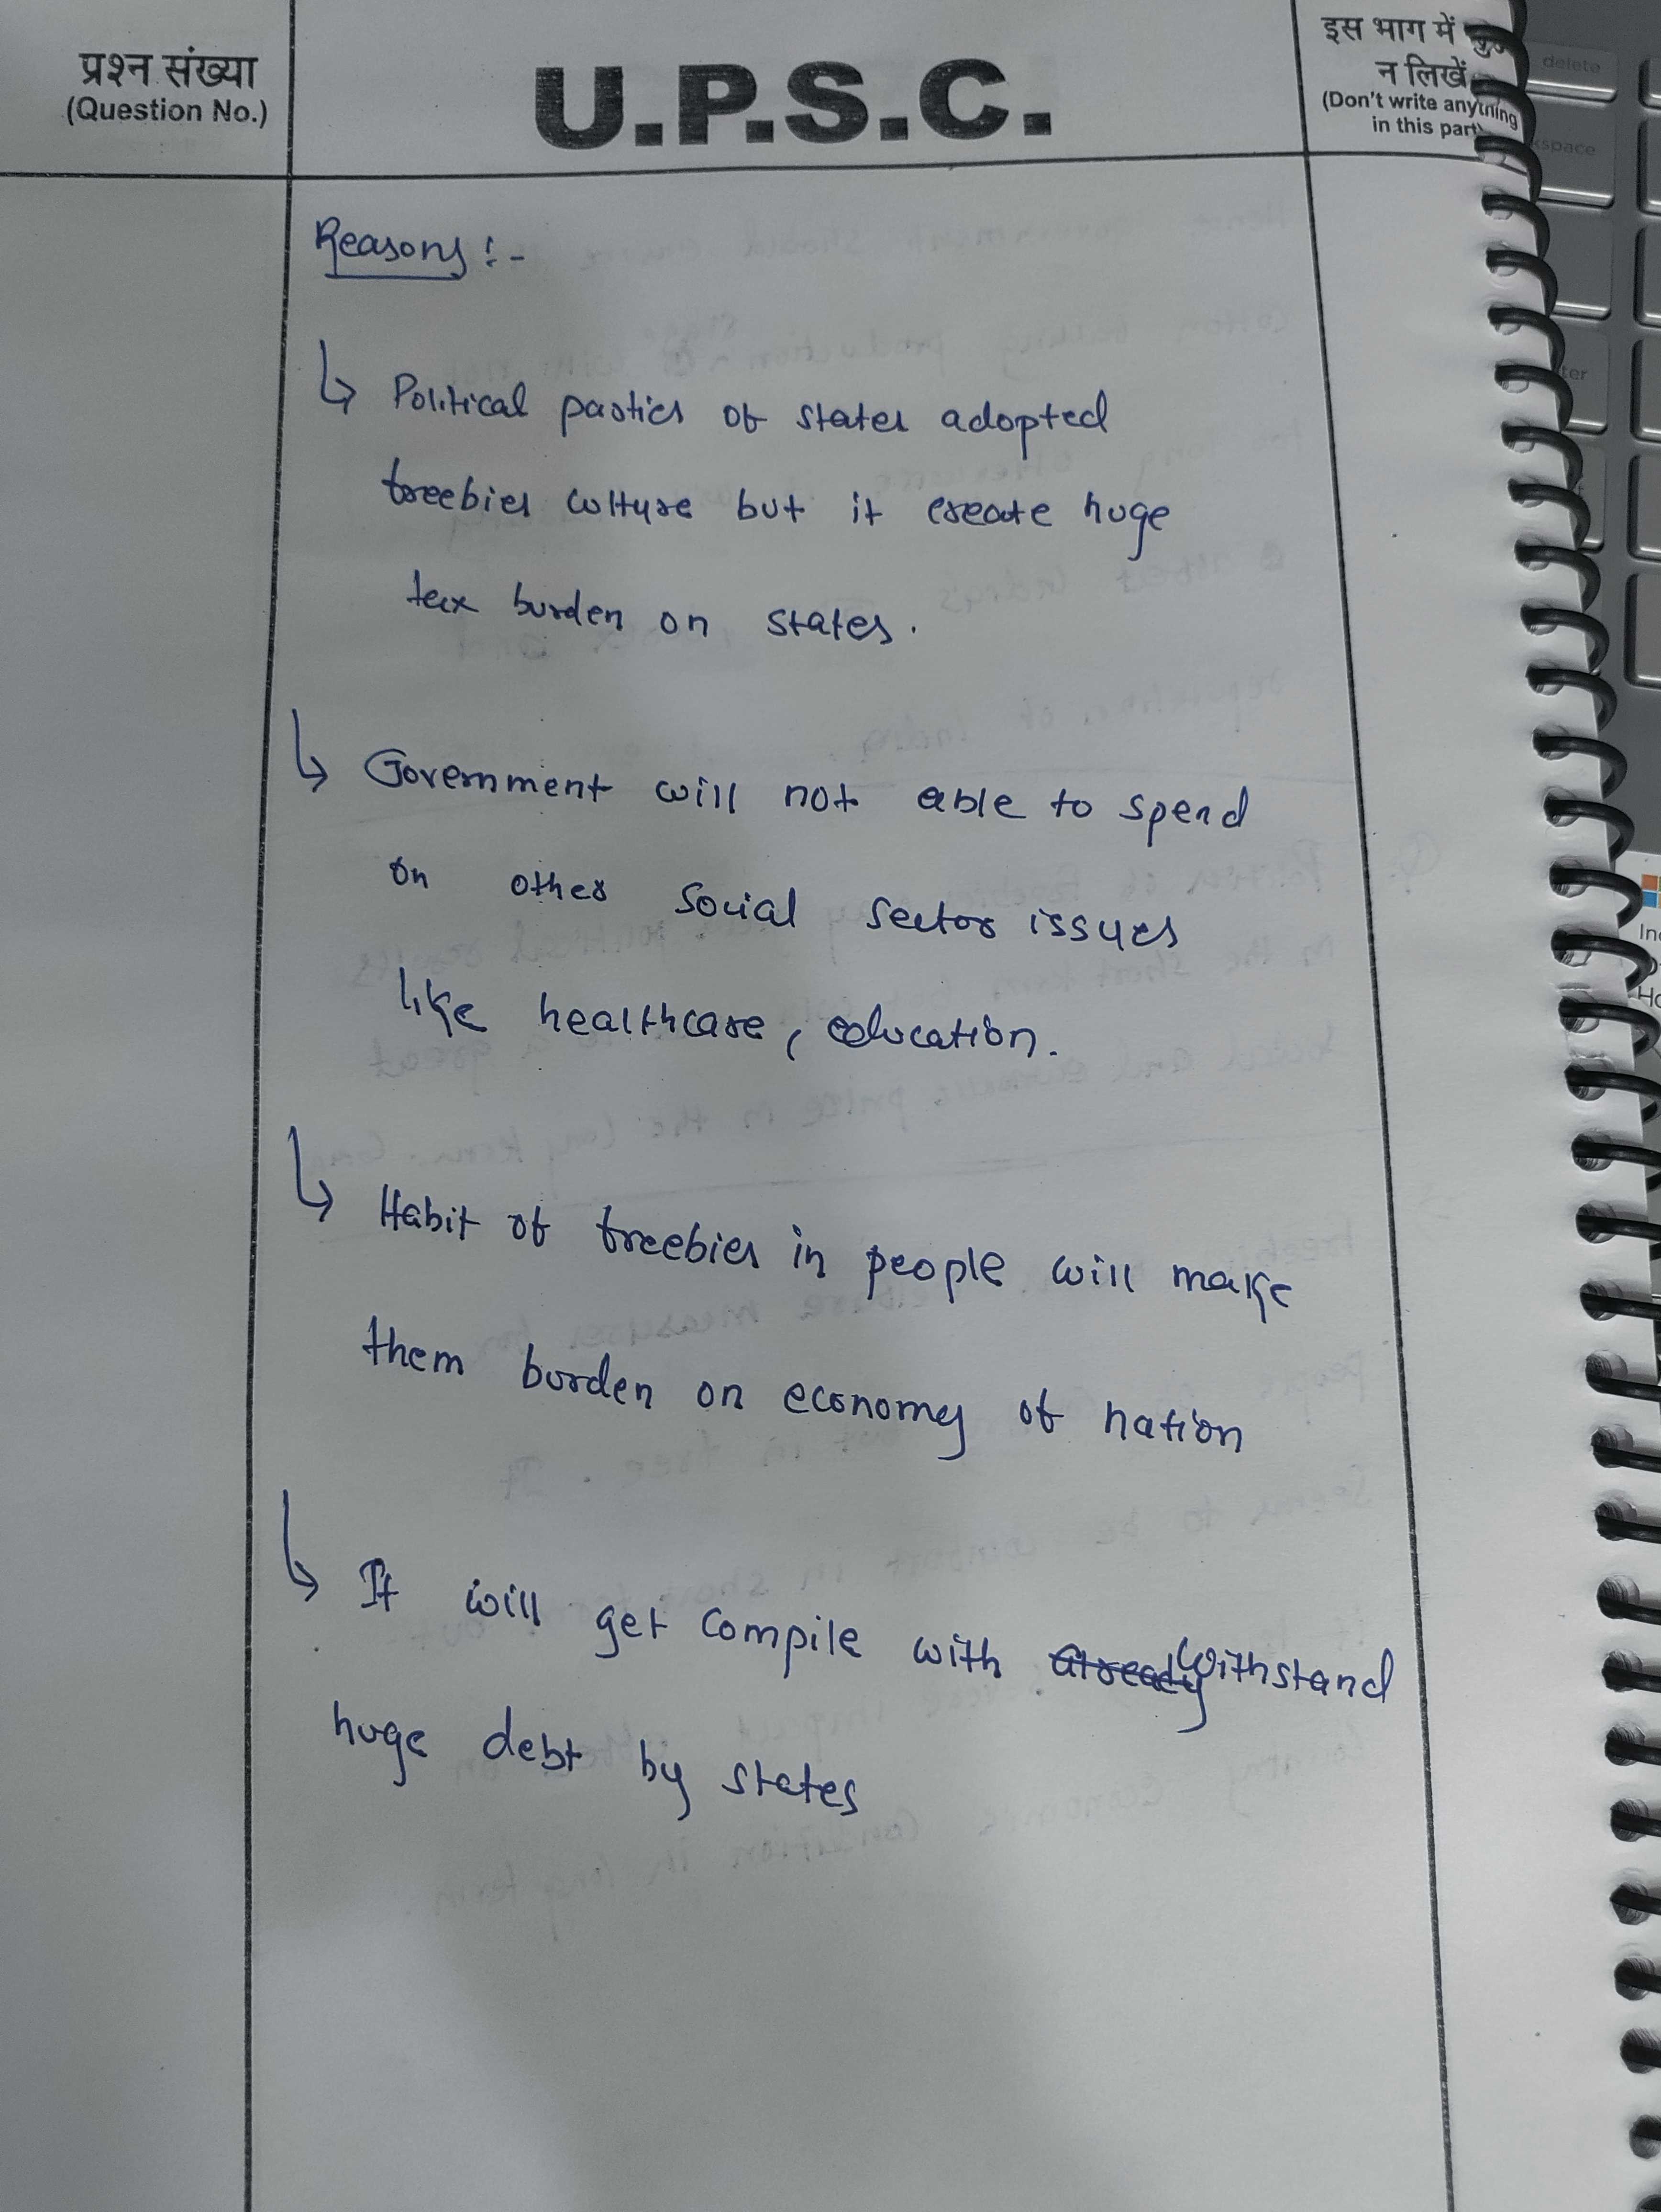 प्रश्न संख्या
(Question No.)
U.P.S.C.
इस भाग में कुछ
न लिखें
(Don't write anything
in this part)
delete
Reasons :-
↳ Political parties of states adopted
freebies culture but it create huge
tax burden on states.
↳ Government will not able to spend
on other social sector issues
like healthcare, education.
↳ Habit of freebies in people will make
them burden on economy of nation
↳ It will get compile with already withstand
huge debt by states